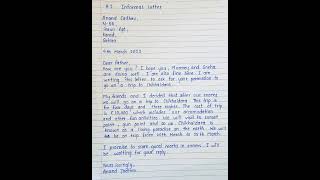 Q.1 Informal Letter
Anand Jadhav,
Karad,
Satara
4th March 2022
Dear Father,
How are you? I hope you, Mummy and Sneha
are doing well. I am also fine here. I am
writing this letter to ask for your permission to
go on a trip to Chikhaldara.
My friends and I decided that after our exams
we will go on a trip to Chikhaldara. This trip is
for four days and three nights. The cost of trip
is which includes our accomodation
and other fun activities. We will visit to sunset
point, gun point and so on. Chikhaldara is
known as a living paradise on the earth. We will
be on trip from March to March.
I promise to score good marks in exams. I will
be waiting for your reply.
Yours lovingly,
Anand Jadhav